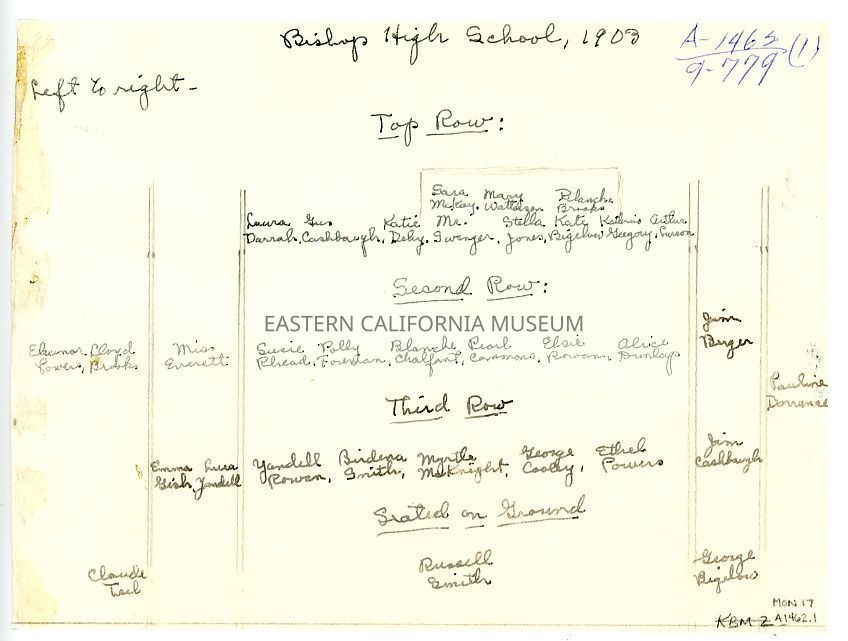 Bishop High School, 1903
A-1462 (1)
9-779
Left to right -
Top Row:
Sara Mary Blanche
McKay, Watterson Brooks
Laura Gus Katie Mr. Stella Kate Kathrine Arthur
Darrah, Cashbaugh, Deby, Swenger, Jones, Bigelow Gregory,
Second Row:
EASTERN CALIFORNIA MUSEUM
Jim
Birger
Eleanor Lloyd Miss Susie Polly Blanche Pearl Elsie Alice
Powers, Brooks Everett Rhead, Foreman, Chalfant, Cammons, Rowan, Dunlap
Pauline
Dorrance
Third Row
Emma Yandell Birdena Myrtle George Ethel Jim
Gish, Yandell Rowan, Smith, McKnight, Cooley, Powers Cashbaugh
Seated on Ground
Claude Russell George
Smith Bigelow
MON 17
KBM 2 A1462.1